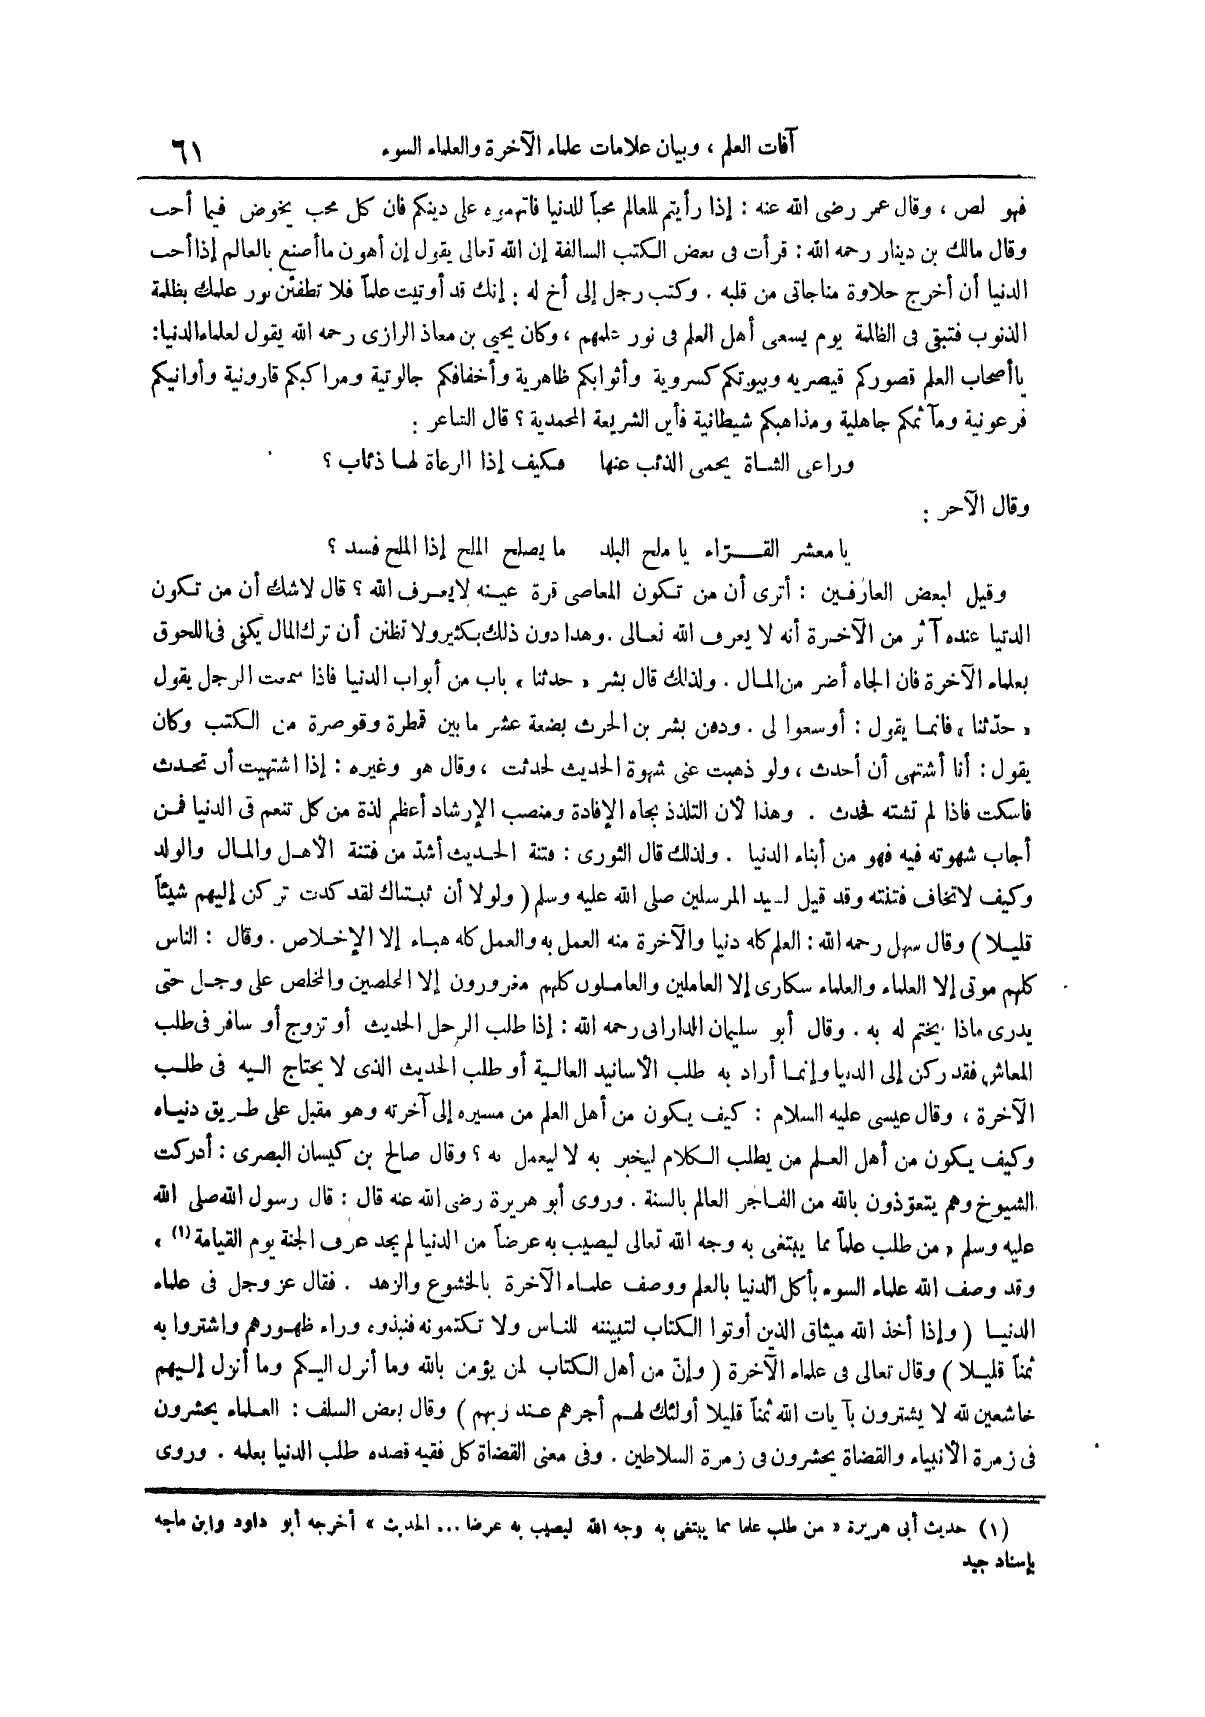 آفات العلم ، وبيان علامات علماء الآخرة والعلماء السوء ٦١
فهو لص ، وقال عمر رضى الله عنه : إذا رأيتم العالم محباً للدنيا فاتهموه على دينكم فان كل محب يخوض فيما أحب
وقال مالك بن دينار رحمه الله : قرأت فى بعض الكتب السالفة إن الله تعالى يقول إن أهون ماأصنع بالعالم إذا أحب
الدنيا أن أخرج حلاوة مناجاتى من قلبه . وكتب رجل إلى أخ له : إنك قد أوتيت علماً فلا تطفئن نور علمك بظلمة
الذنوب فتبقى فى الظلمة يوم يسعى أهل العلم فى نور علمهم ، وكان يحيى بن معاذ الرازى رحمه الله يقول لعلماءالدنيا:
ياأصحاب العلم قصوركم قيصريه وبيوتكم كسروية وأثوابكم ظاهرية وأخفافكم جالوتية ومراكبكم قارونية وأوانيكم
فرعونية ومآثمكم جاهلية ومذاهبكم شيطانية فأين الشريعة المحمدية ؟ قال الشاعر :
وراعى الشاة يحمى الذئب عنها فكيف إذا الرعاة لها ذئاب ؟
وقال الآخر :
يا معشر القـــرّاء يا ملح البلد ما يصلح الملح إذا الملح فسد ؟
وقيل لبعض العارفين : أترى أن من تكون المعاصى قرة عينه لايعرف الله ؟ قال لاشك أن من تكون
الدنيا عنده آثر من الآخرة أنه لا يعرف الله تعالى .وهذا دون ذلك بكثيرولا تظنن أن ترك المال يكفى فى اللحوق
بعلماء الآخرة فان الجاه أضر من المال . ولذلك قال بشر « حدثنا » باب من أبواب الدنيا فاذا سمعت الرجل يقول
« حدّثنا » فانما يقول : أوسعوا لى . ودفن بشر بن الحرث بضعة عشر ما بين قمطرة وقوصرة من الكتب وكان
يقول : أنا أشتهى أن أحدث ، ولو ذهبت عنى شهوة الحديث لحدثت ، وقال هو وغيره : إذا اشتهيت أن تحدث
فاسكت فاذا لم تشته فحدث . وهذا لأن التلذذ بجاه الإفادة ومنصب الإرشاد أعظم لذة من كل تنعم فى الدنيا فمن
أجاب شهوته فيه فهو من أبناء الدنيا . ولذلك قال الثورى : فتنة الحديث أشدّ من فتنة الأهل والمال والولد
وكيف لاتخاف فتنته وقد قيل لسيد المرسلين صلى الله عليه وسلم ( ولولا أن ثبتناك لقد كدت تركن إليهم شيئاً
قليلا ) وقال سهل رحمه الله : العلم كله دنيا والآخرة منه العمل به والعمل كله هباء إلا الإخلاص . وقال : الناس
كلهم موتى إلا العلماء والعلماء سكارى إلا العاملين والعاملون كلهم مغرورون إلا المخلصين والمخلص على وجل حتى
يدرى ماذا يختم له به . وقال أبو سليمان الدارانى رحمه الله : إذا طلب الرجل الحديث أو تزوج أو سافر فى طلب
المعاش فقد ركن إلى الدنيا وإنما أراد به طلب الأسانيد العالية أو طلب الحديث الذى لا يحتاج اليه فى طلب
الآخرة ، وقال عيسى عليه السلام : كيف يكون من أهل العلم من مسيره إلى آخرته وهو مقبل على طريق دنياه
وكيف يكون من أهل العلم من يطلب الكلام ليخبر به لا ليعمل به ؟ وقال صالح بن كيسان البصرى : أدركت
الشيوخ وهم يتعوّذون بالله من الفاجر العالم بالسنة . وروى أبو هريرة رضى الله عنه قال : قال رسول الله صلى الله
عليه وسلم « من طلب علماً مما يبتغى به وجه الله تعالى ليصيب به عرضاً من الدنيا لم يجد عرف الجنة يوم القيامة (١) »
وقد وصف الله علماء السوء بأكل الدنيا بالعلم ووصف علماء الآخرة بالخشوع والزهد . فقال عز وجل فى علماء
الدنيا ( وإذا أخذ الله ميثاق الذين أوتوا الكتاب لتبيننه للناس ولا تكتمونه فنبذوه وراء ظهورهم واشتروا به
ثمناً قليلا ) وقال تعالى فى علماء الآخرة ( وإنّ من أهل الكتاب لمن يؤمن بالله وما أنزل اليكم وما أنزل إليهم
خاشعين لله لا يشترون بآيات الله ثمناً قليلا أولئك لهم أجرهم عند ربهم ) وقال بعض السلف : العلماء يحشرون
فى زمرة الأنبياء والقضاة يحشرون فى زمرة السلاطين . وفى معنى القضاة كل فقيه قصده طلب الدنيا بعلمه . وروى
(١) حديث أبى هريرة « من طلب علما مما يبتغى به وجه الله ليصيب به عرضا ... الحديث » أخرجه أبو داود وابن ماجه
بإسناد جيد